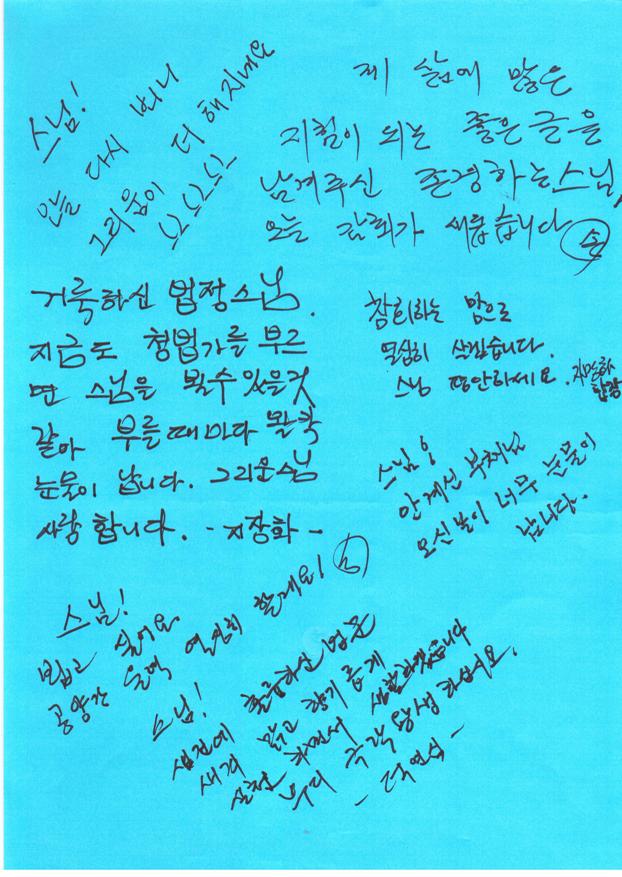 스님!
오늘 다시 뵈니
그리움이 더 해지네요
제 삶에 많은
지침이 되는 좋은 글을
남겨주신 존경하는 스님,
오늘 감회가 새롭습니다
거룩하신 법정스님.
지금도 청법가를 부르
면 스님을 뵐수 있을것
같아 부를때 마다 왈칵
눈물이 납니다. 그리운 스님
사랑 합니다. - 지장화 -
참회하는 맘으로
열심히 살겠습니다.
스님 평안하세요.
합장
스님이
안 계신 부처님
오신날이 너무 눈물이
납니다.
스님!
뵙고 싶어요
공양간 울력 열심히 할게요!
스님!
생전에 훌륭하신 법문
새겨 맑고 향기롭게
실천 하면서 생활하겠습니다
부디 극락왕생 하십시요.